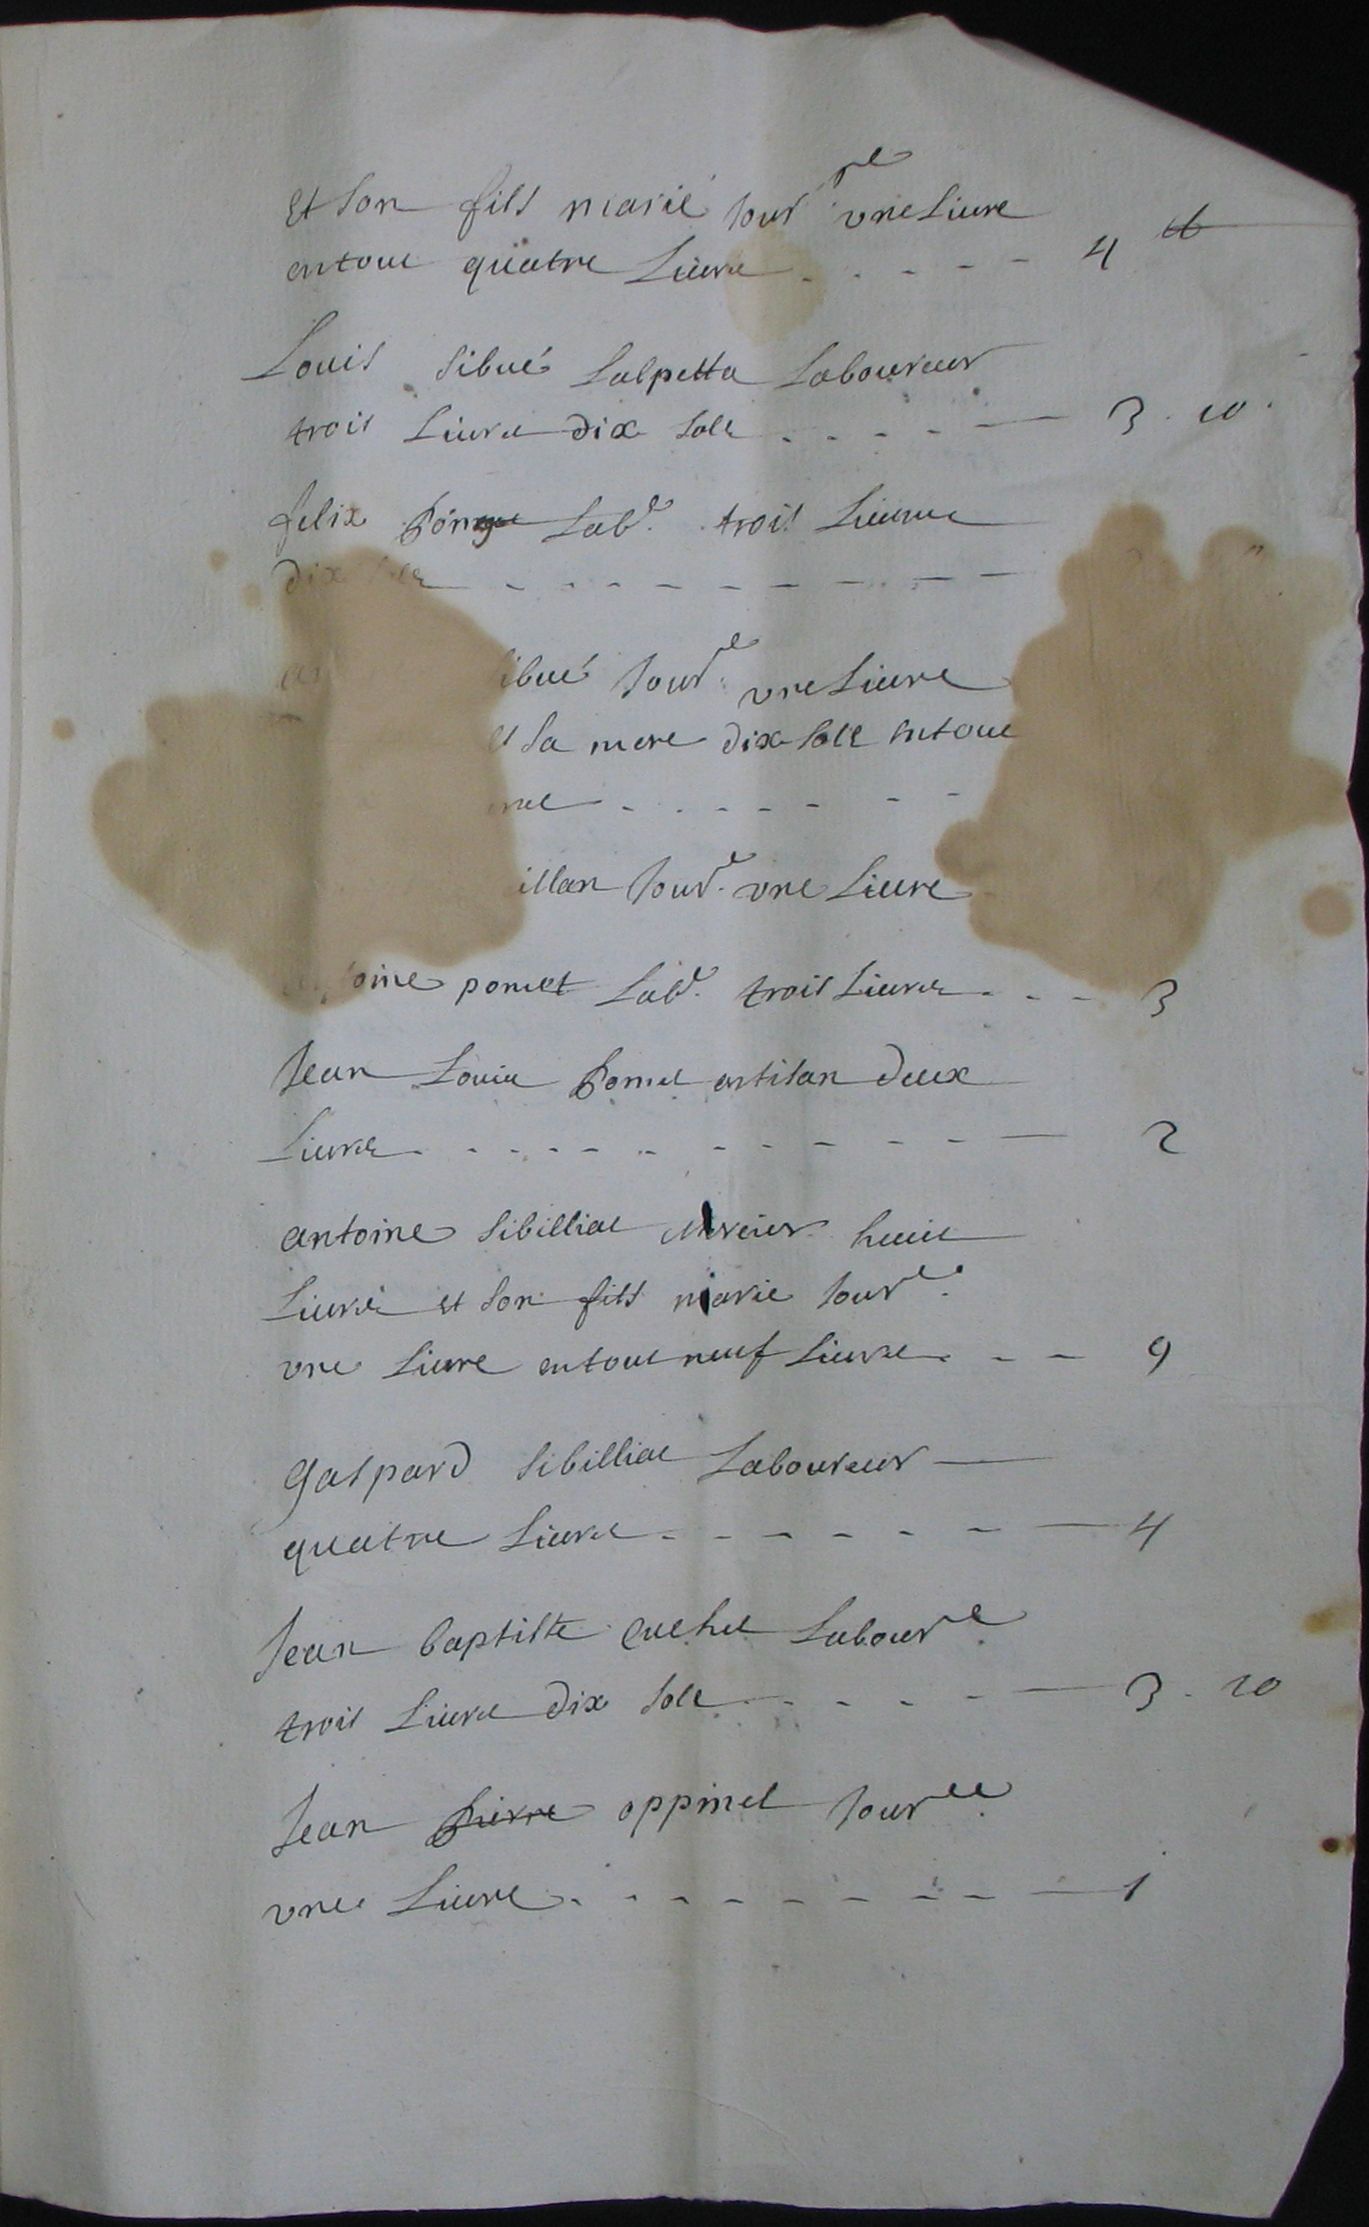 et son fils marié jour.re une livre
en tout quatre Livre . - - - - 4 lb
Louis Sibué Salpetta Laboureur
trois Livre dix sols . - - - - 3 . 10
felix Lab.r trois Livre
dix - - - - - - - - -
ibué jour.re une Livre
et sa mere dix sols en tout
- - - - - - -
illan jour.e une Livre
oine pomet Lab.r trois Livres - - - 3
Jean Louis Pomet artisan deux
Livres - - - - - - - - - 2
antoine Sibilliat huit
Livres et son fils marie jour.re
une Livre en tout neuf Livres - - - 9
gaspard Sibilliat Laboureur
quatre Livre - - - - - - - 4
Jean baptiste cuchet Labour.r
trois Livre dix sols - - - - - 3 . 10
Jean pierre oppinel jour.re
une Livre . - - - - - - - - 1